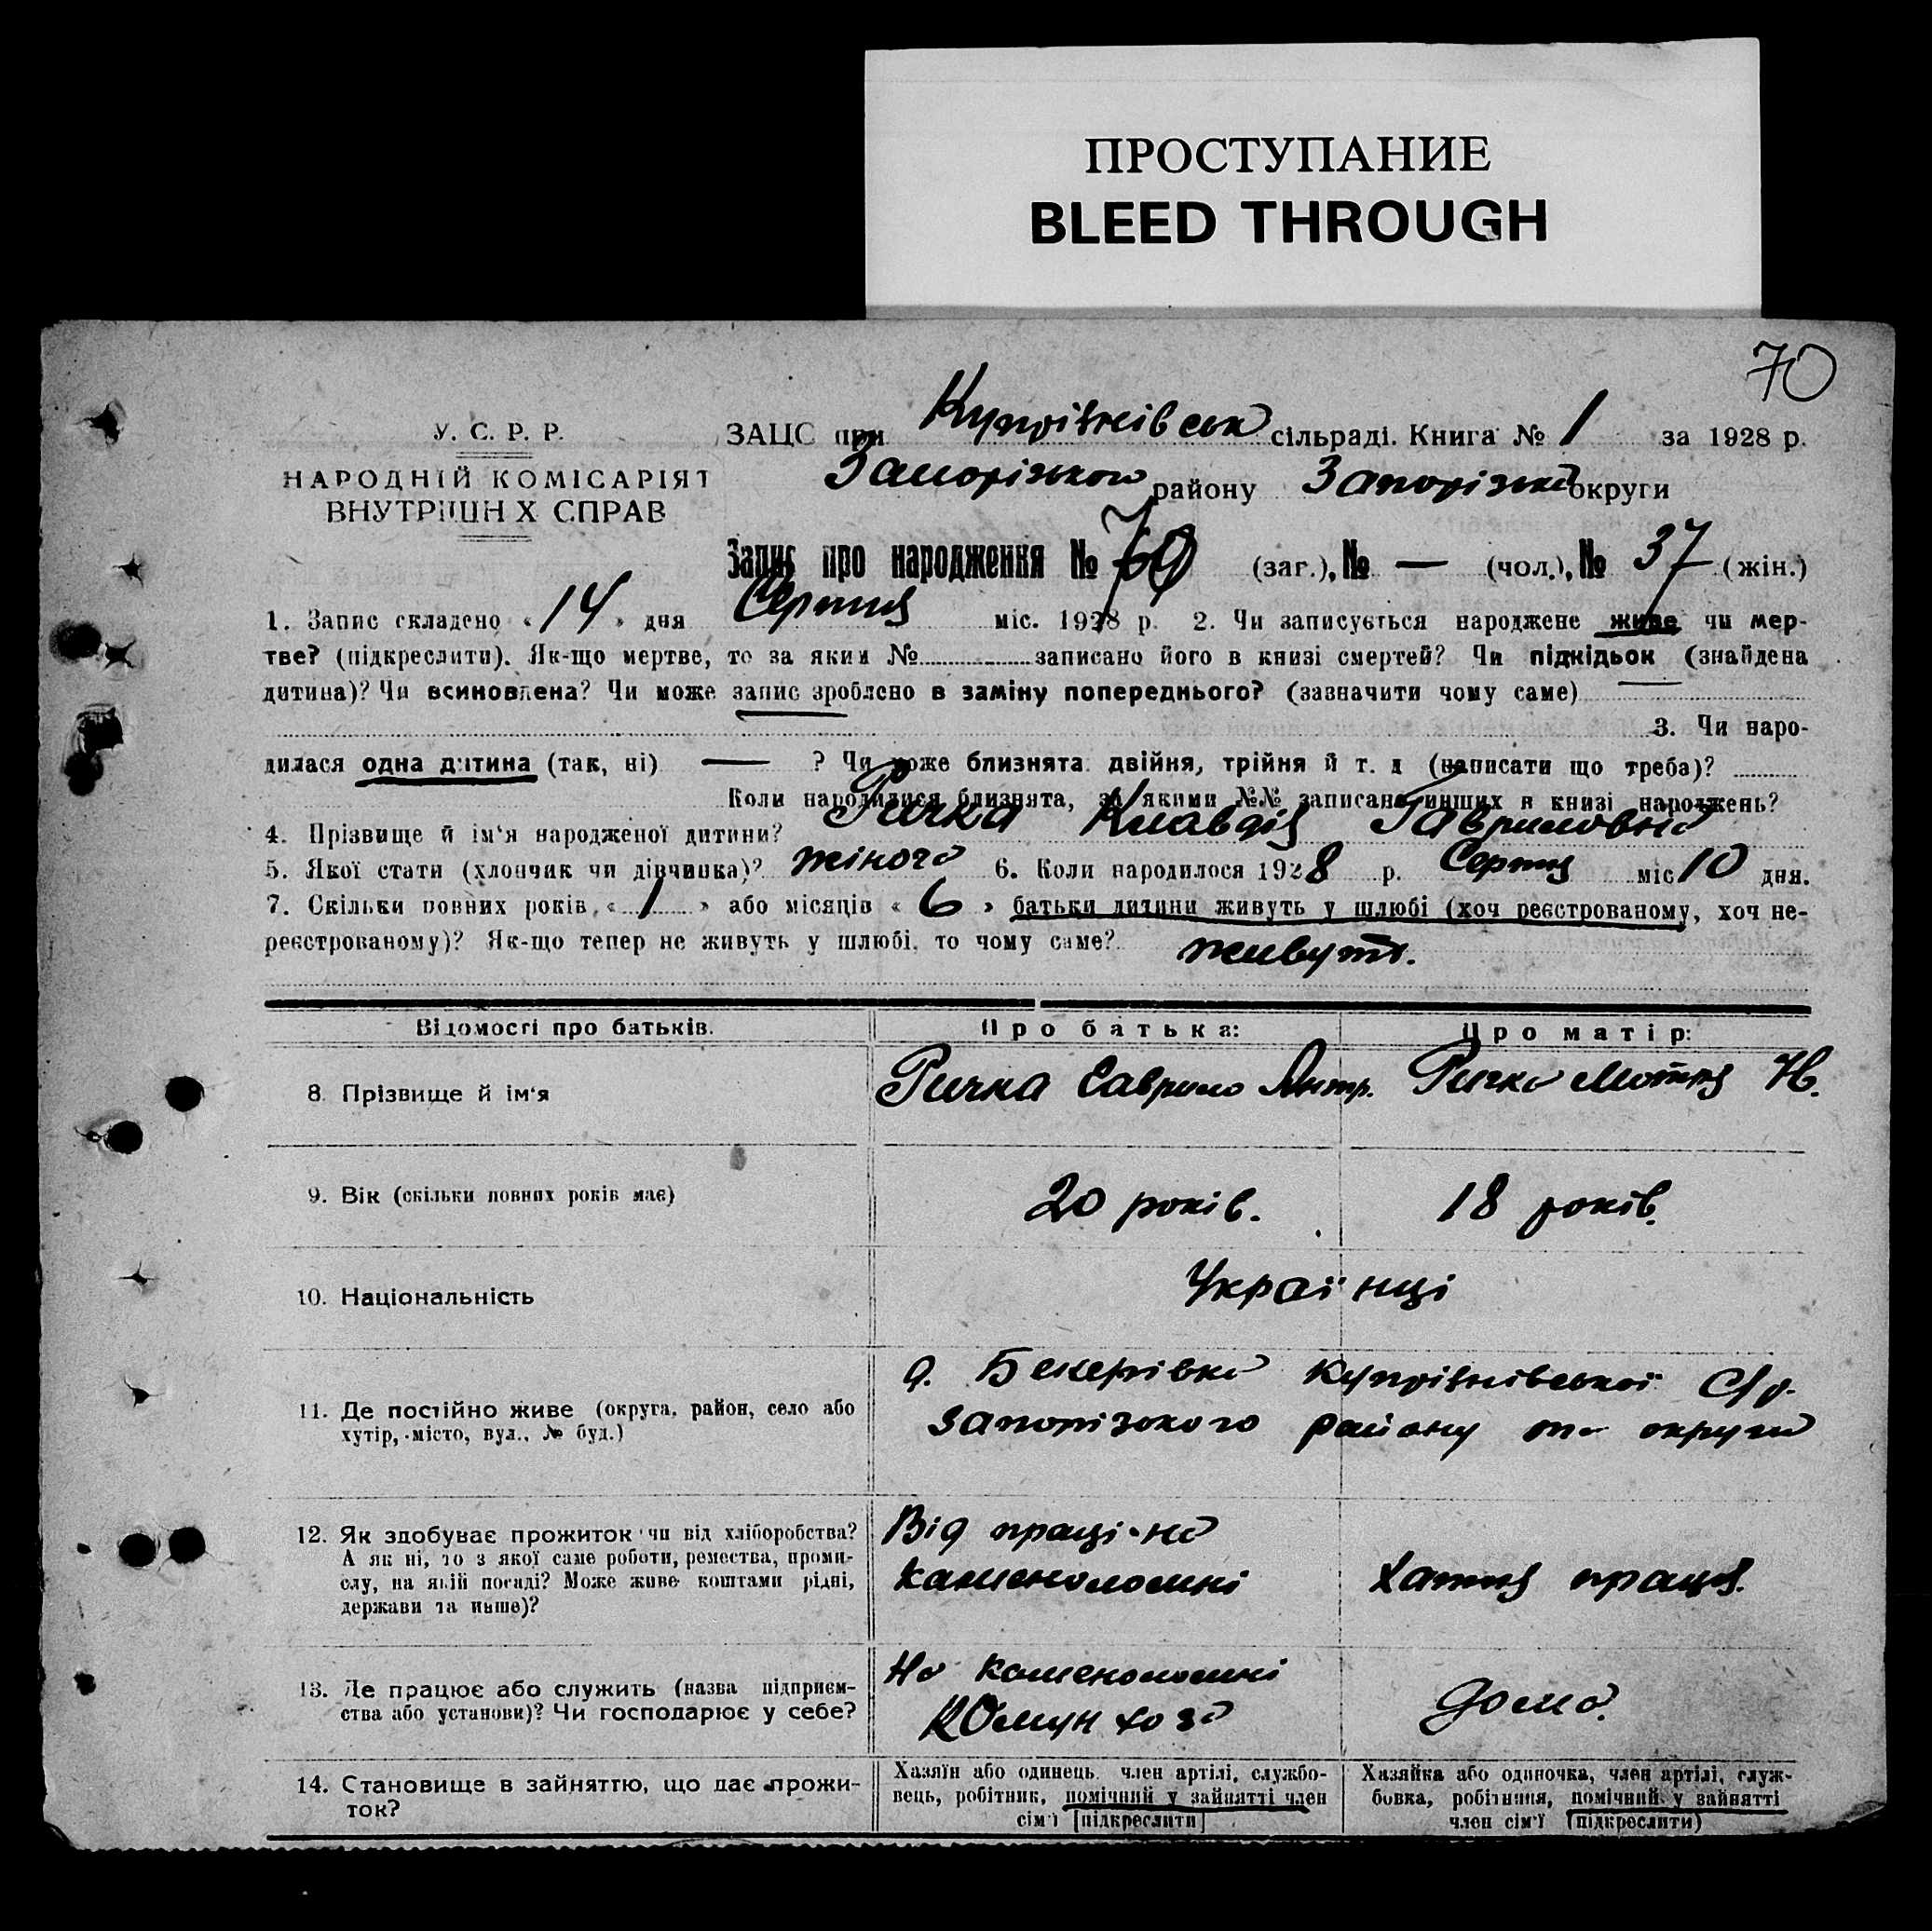 ПРОСТУПАНИЕ
BLEED THROUGH
70
У. С. Р. Р.
НАРОДНІЙ КОМІСАРІЯТ
ВНУТРІШН Х СПРАВ
ЗАЦС при Купріянівськ сільраді. Книга № 1 за 1928 р.
Запорізького району Запорізької округи
Запис про народження № 70 (заг.), № — (чол.), № 37 (жін.)
1. Запис складено «14» дня Серпня міс. 1928 р. 2. Чи записується народжене живе чи мер-
тве? (підкреслити). Як-що мертве, то за яким № записано його в книзі смертей? Чи підкідьок (знайдена
дитина)? Чи всиновлена? Чи може запис зроблено в заміну попереднього? (зазначити чому саме) —
3. Чи наро-
дилася одна дитина (так, ні) — ? Чи може близнята: двійня, трійня й т. д (написати що треба)?
Коли народилися близнята, за якими №№ записано инших в книзі народжень?
4. Прізвище й ім'я народженої дитини? Ричка Клавдія Гавриловна
5. Якої стати (хлопчик чи дівчинка)? жіноча 6. Коли народилося 1928 р. Серпня міс 10 дня.
7. Скільки повних років «1» або місяців «6» батьки дитини живуть у шлюбі (хоч реєстрованому, хоч не-
реєстрованому)? Як-що тепер не живуть у шлюбі, то чому саме? живуть.
Відомості про батьків.
Про батька:
Про матір:
8. Прізвище й ім'я
Ричка Гаврило Антр.
Ричка Мотря Н.
9. Вік (скільки повних років має)
20 років.
18 років.
10. Національність
Українці
11. Де постійно живе (округа, район, село або
хутір, місто, вул., № буд.)
д. Бекерівка Купріянівської С/р.
Запорізького району та округи
12. Як здобуває прожиток чи від хліборобства?
А як ні, то з якої саме роботи, ремества, проми-
слу, на якій посаді? Може живе коштами рідні,
держави та инше)?
Від праці на
каменоломні
Хатня праця.
13. Де працює або служить (назва підприєм-
ства або установи)? Чи господарює у себе?
На каменоломні
Комунхоза
дома.
14. Становище в зайняттю, що дає прожи-
ток?
Хазяїн або одинець, член артілі, службо-
вець, робітник, помічний у зайнятті член
сім'ї [підкреслити]
Хазяйка або одиночка, член артілі, служ-
бовка, робітниця, помічний у зайнятті
член сім'ї (підкреслити)